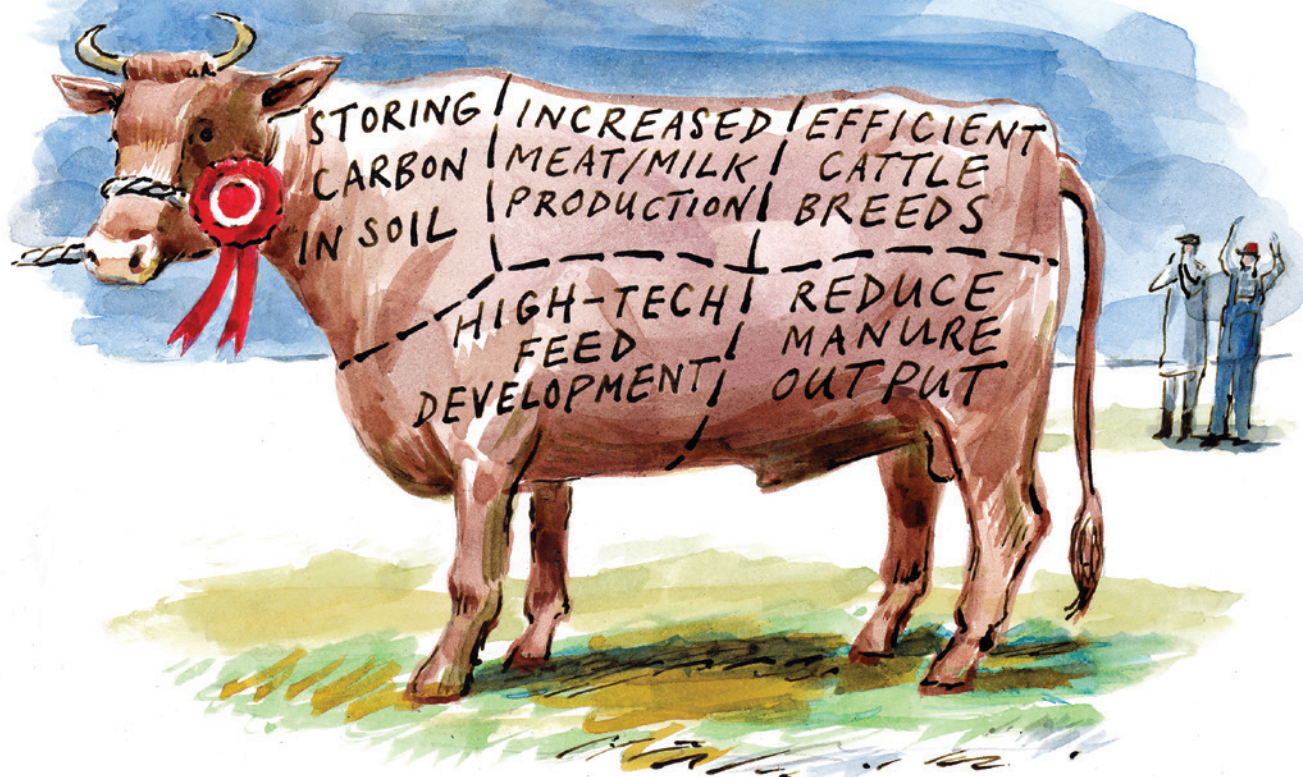 STORING
CARBON
IN SOIL
INCREASED
MEAT/MILK
PRODUCTION
EFFICIENT
CATTLE
BREEDS
HIGH-TECH
FEED
DEVELOPMENT
REDUCE
MANURE
OUTPUT